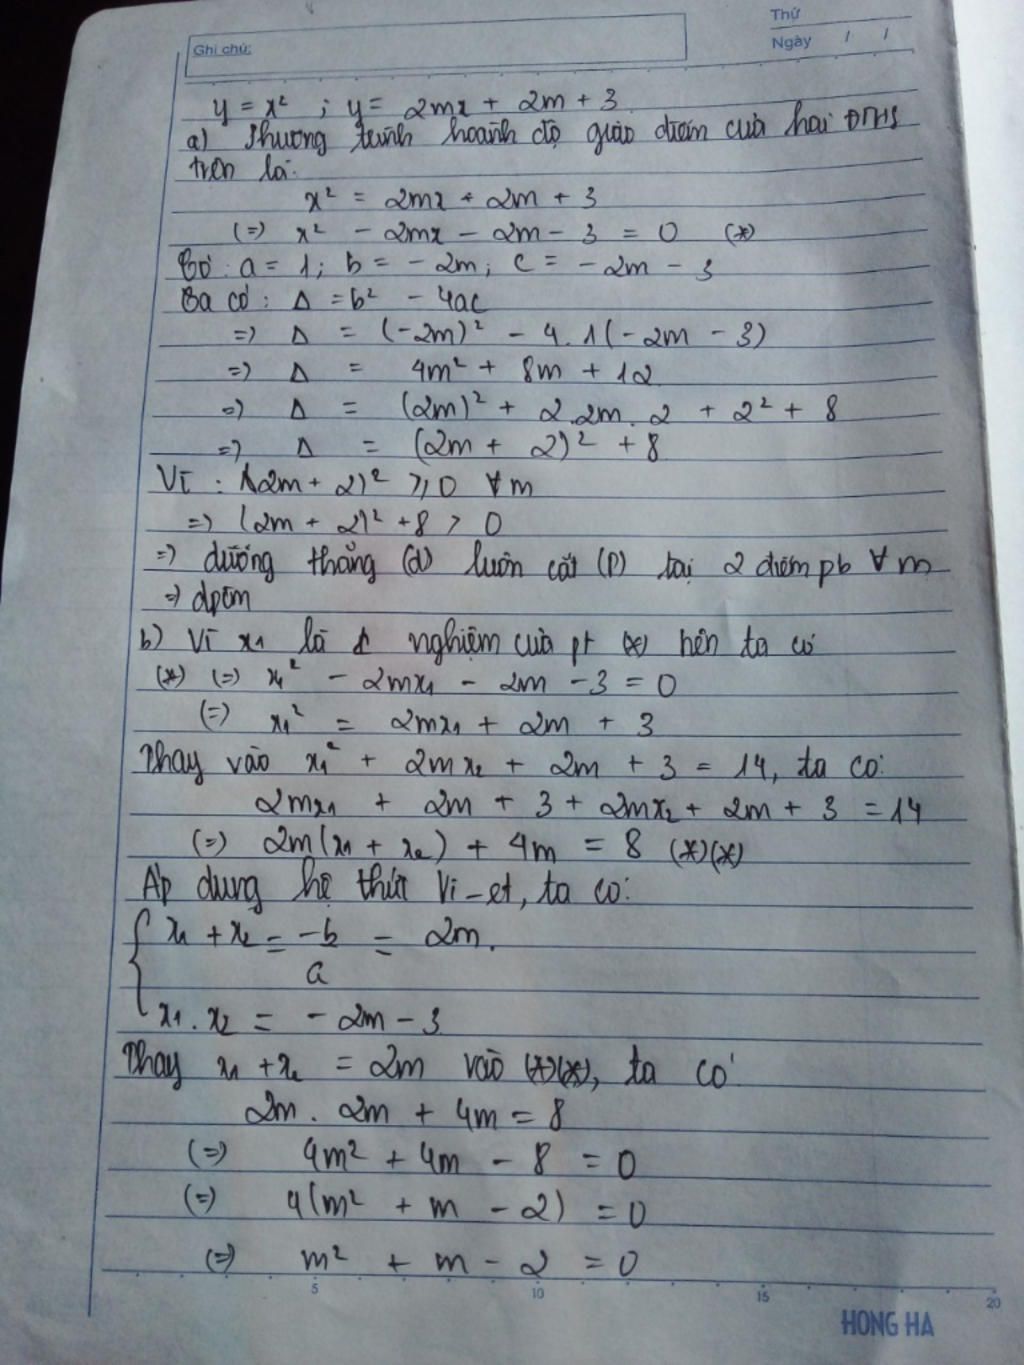 Thứ
Ghi chú:
Ngày / /
y = x² ; y = 2mx + 2m + 3
a) Phương trình hoành độ giao điểm của hai ĐTHS
trên là:
x² = 2mx + 2m + 3
(=) x² - 2mx - 2m - 3 = 0 (*)
Có: a = 1; b = - 2m; c = - 2m - 3
Ta có: Δ = b² - 4ac
=) Δ = (-2m)² - 4.1(-2m - 3)
=) Δ = 4m² + 8m + 12
=) Δ = (2m)² + 2.2m.2 + 2² + 8
=) Δ = (2m + 2)² + 8
Vì: (2m + 2)² ⩾ 0 ∀m
=) (2m + 2)² + 8 > 0
=) đường thẳng (d) luôn cắt (P) tại 2 điểm pb ∀m
=) đpcm
b) Vì x₁ là 1 nghiệm của pt (*) nên ta có
(*) (=) x₁² - 2mx₁ - 2m - 3 = 0
(=) x₁² = 2mx₁ + 2m + 3
Thay vào x₁² + 2mx₂ + 2m + 3 = 14, ta có:
2mx₁ + 2m + 3 + 2mx₂ + 2m + 3 = 14
(=) 2m(x₁ + x₂) + 4m = 8 (*)(*)
Áp dụng hệ thức Vi-et, ta có:
{ x₁ + x₂ = -b/a = 2m.
x₁ . x₂ = - 2m - 3
Thay x₁ + x₂ = 2m vào (*)(*), ta có
2m . 2m + 4m = 8
(=) 4m² + 4m - 8 = 0
(=) 4(m² + m - 2) = 0
(=) m² + m - 2 = 0
5 10 15 20
HONG HA